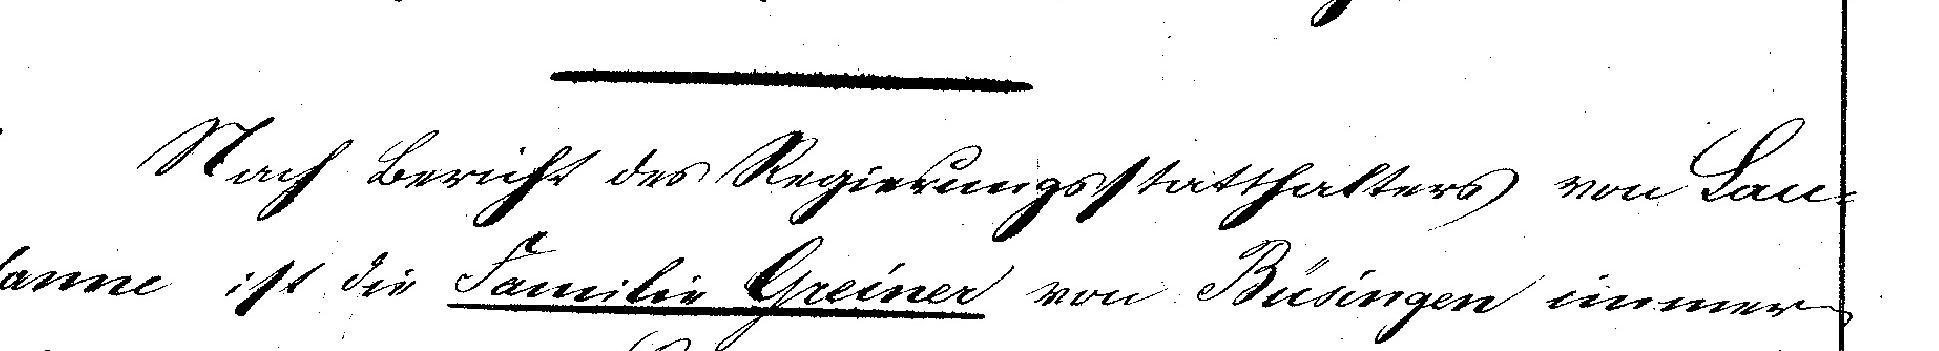 Nach Bericht des Regierungsstatthalters von Lau-
sanne ist die Familie Greiner von Büsingen immer